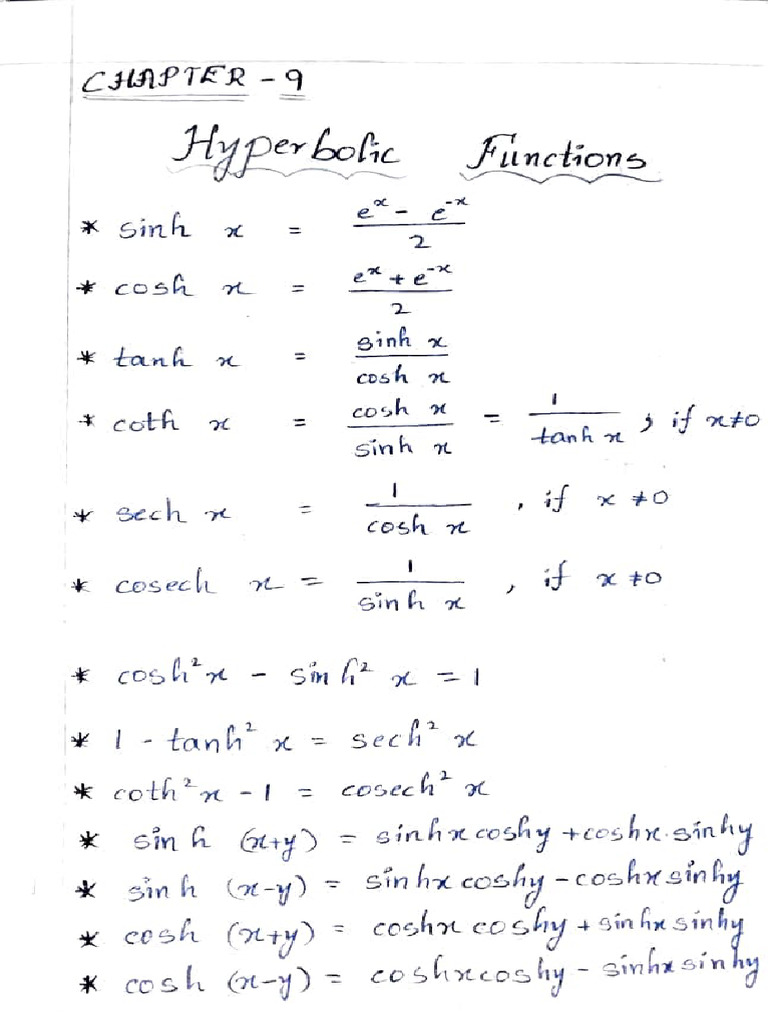 CHAPTER - 9
Hyperbolic Functions
* sinh x = (e^x - e^-x)/2
* cosh x = (e^x + e^-x)/2
* tanh x = sinh x / cosh x
* coth x = cosh x / sinh x = 1 / tanh x ; if x≠0
* sech x = 1 / cosh x , if x ≠0
* cosech x = 1 / sinh x , if x ≠0
* cosh²x - sinh² x = 1
* 1 - tanh² x = sech² x
* coth²x - 1 = cosech² x
* sinh (x+y) = sinhx coshy + coshx.sinhy
* sinh (x-y) = sinhx coshy - coshx sinhy
* cosh (x+y) = coshx coshy + sinhx sinhy
* cosh (x-y) = coshx coshy - sinhx sinhy